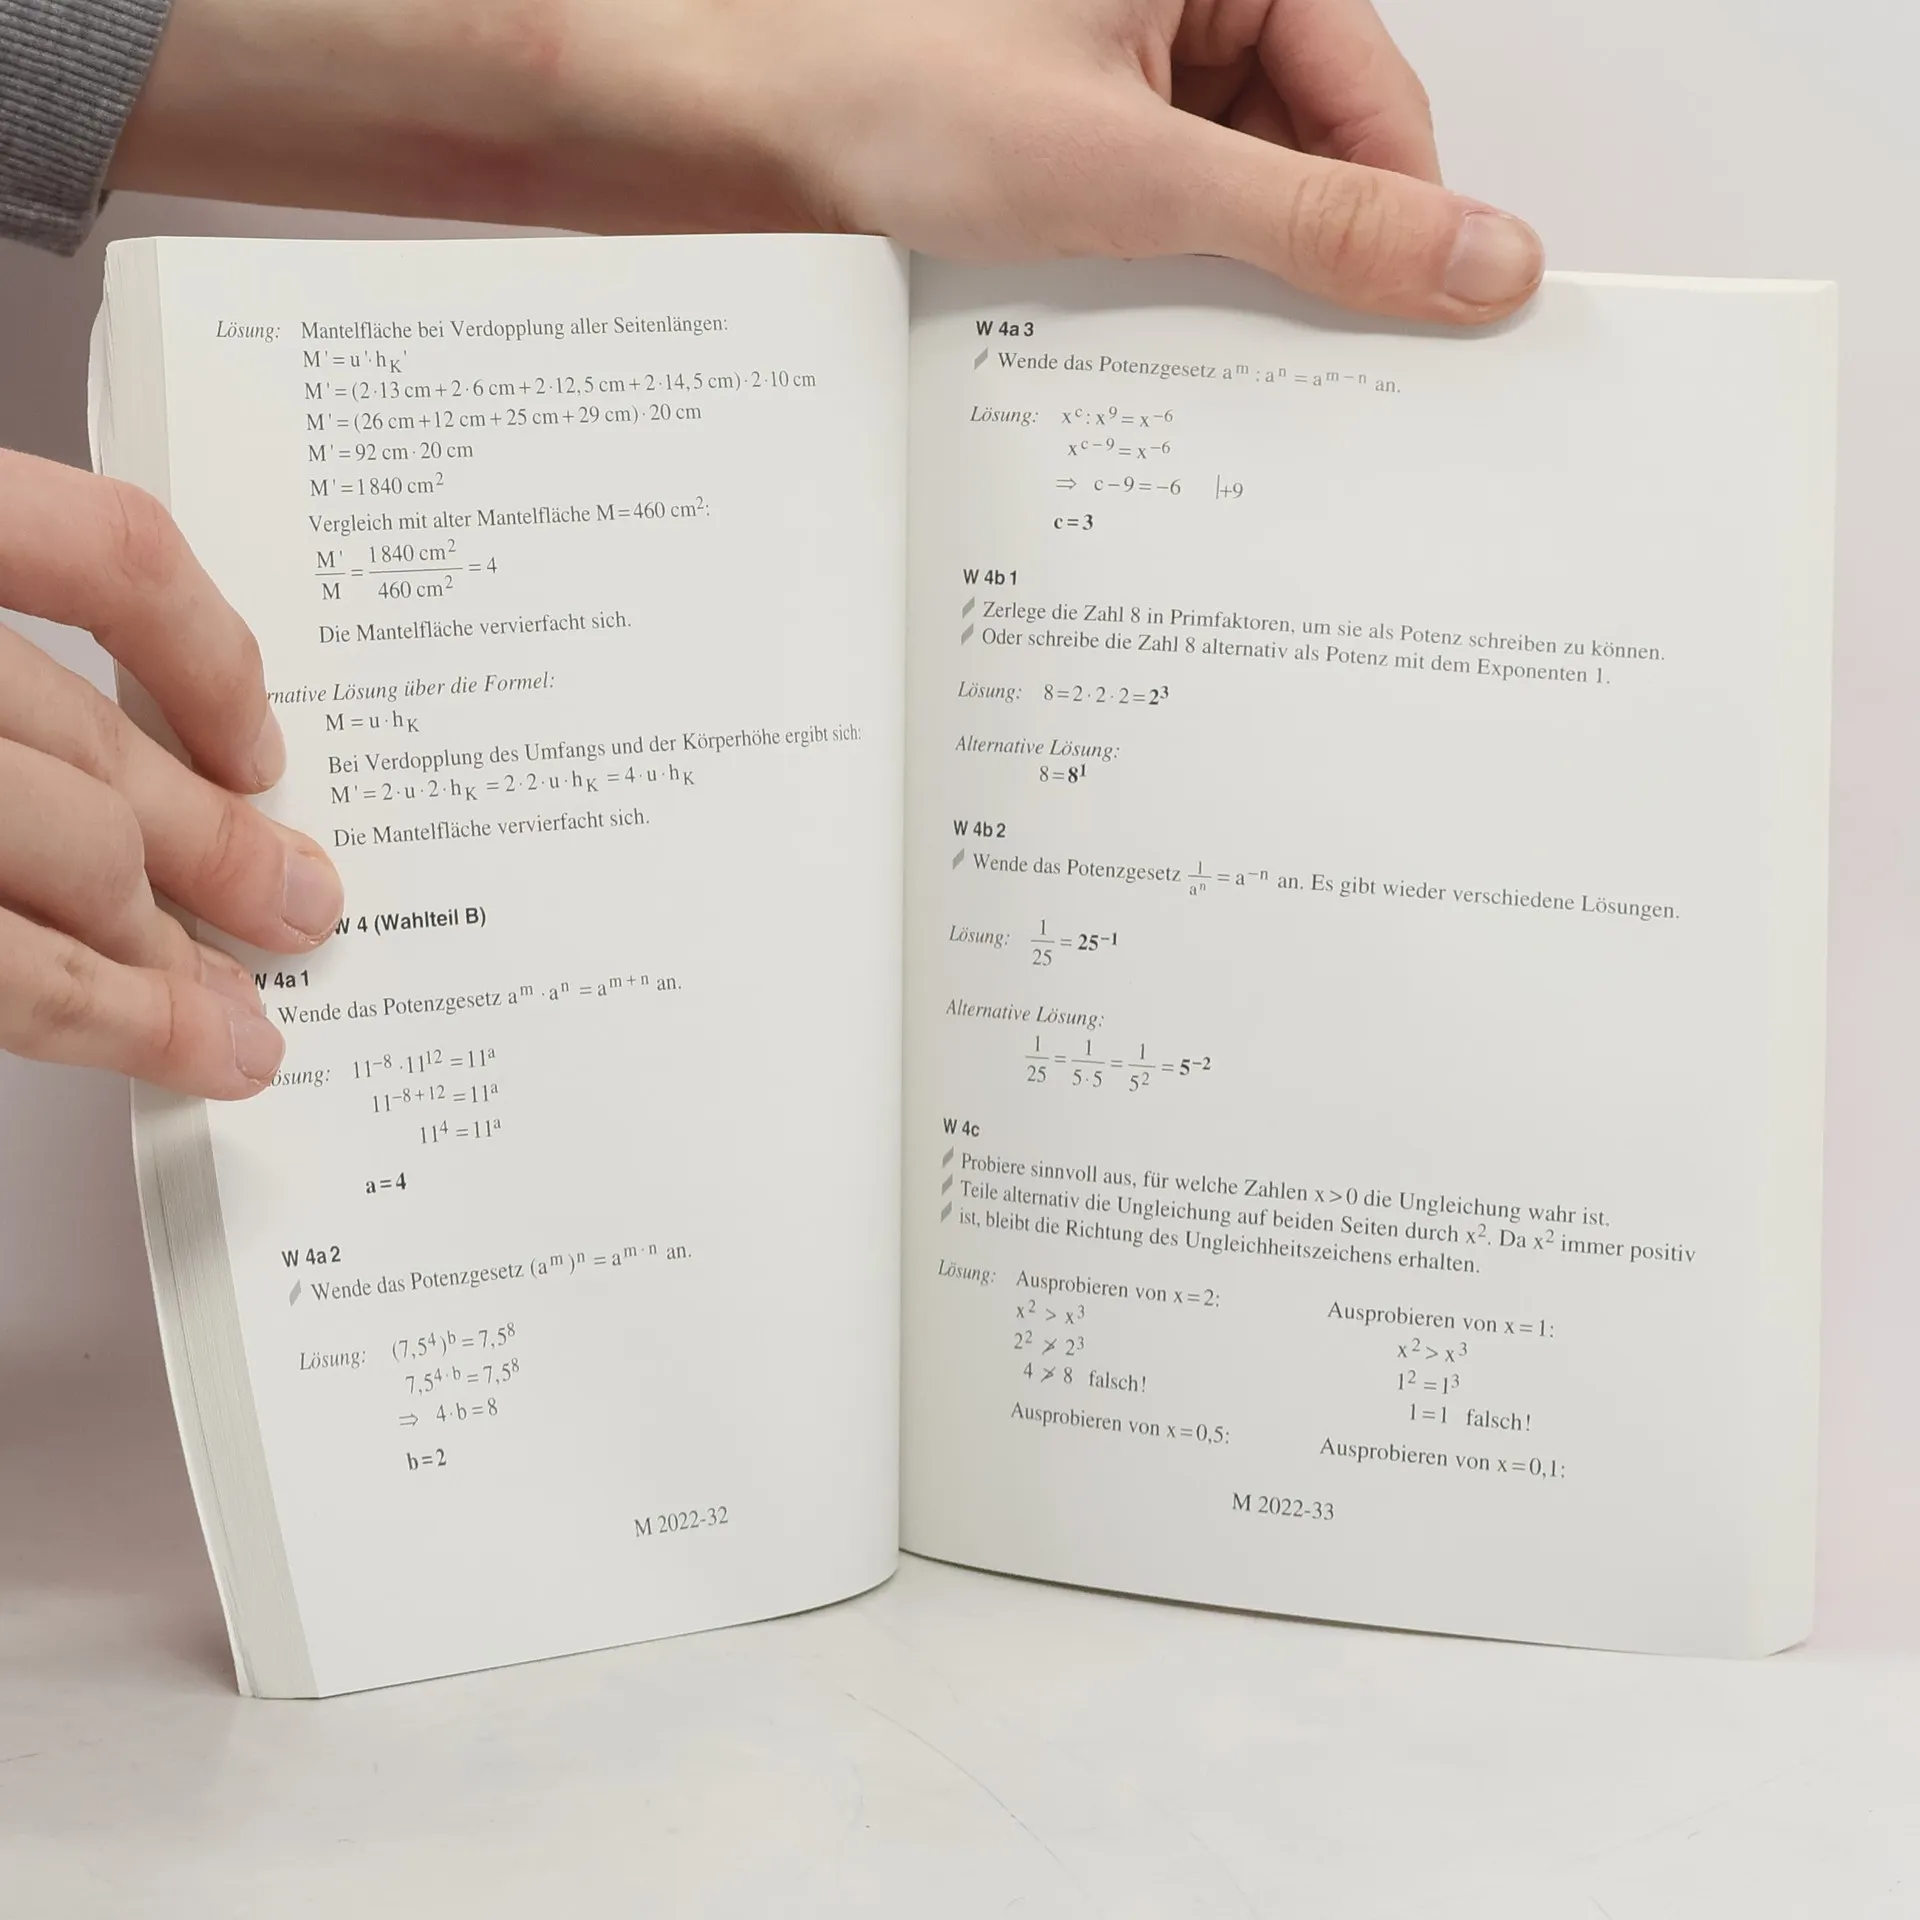 Lösung: Mantelfläche bei Verdopplung aller Seitenlängen:
M'=u'·h_K'
M'=(2·13 cm+2·6 cm+2·12,5 cm+2·14,5 cm)·2·10 cm
M'=(26 cm+12 cm+25 cm+29 cm)·20 cm
M'=92 cm·20 cm
M'=1840 cm²
Vergleich mit alter Mantelfläche M=460 cm²:
M'/M = 1840 cm²/460 cm² = 4
Die Mantelfläche vervierfacht sich.
rnative Lösung über die Formel:
M=u·h_K
Bei Verdopplung des Umfangs und der Körperhöhe ergibt sich:
M'=2·u·2·h_K=2·2·u·h_K=4·u·h_K
Die Mantelfläche vervierfacht sich.
W 4 (Wahlteil B)
W 4a1
Wende das Potenzgesetz a^m·a^n=a^(m+n) an.
ösung: 11^(-8)·11^12=11^a
11^(-8+12)=11^a
11^4=11^a
a=4
W 4a2
Wende das Potenzgesetz (a^m)^n=a^(m·n) an.
Lösung: (7,5^4)^b=7,5^8
7,5^(4·b)=7,5^8
⇒ 4·b=8
b=2
M 2022-32
W 4a3
Wende das Potenzgesetz a^m:a^n=a^(m-n) an.
Lösung: x^c:x^9=x^(-6)
x^(c-9)=x^(-6)
⇒ c-9=-6 |+9
c=3
W 4b1
Zerlege die Zahl 8 in Primfaktoren, um sie als Potenz schreiben zu können.
Oder schreibe die Zahl 8 alternativ als Potenz mit dem Exponenten 1.
Lösung: 8=2·2·2=2³
Alternative Lösung:
8=8¹
W 4b2
Wende das Potenzgesetz 1/a^n=a^(-n) an. Es gibt wieder verschiedene Lösungen.
Lösung: 1/25=25^(-1)
Alternative Lösung:
1/25=1/(5·5)=1/5²=5^(-2)
W 4c
Probiere sinnvoll aus, für welche Zahlen x>0 die Ungleichung wahr ist.
Teile alternativ die Ungleichung auf beiden Seiten durch x². Da x² immer positiv
ist, bleibt die Richtung des Ungleichheitszeichens erhalten.
Lösung: Ausprobieren von x=2:
x² > x³
2² ≯ 2³
4 ≯ 8 falsch!
Ausprobieren von x=0,5:
Ausprobieren von x=1:
x²>x³
1²=1³
1=1 falsch!
Ausprobieren von x=0,1:
M 2022-33